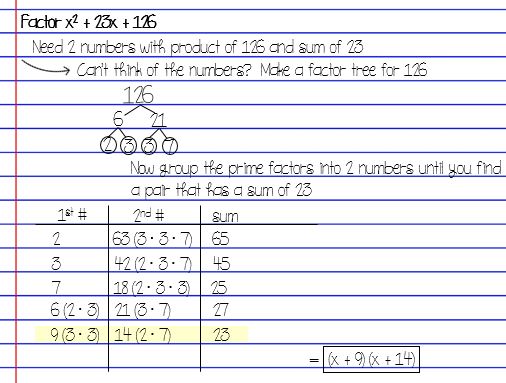 Factor x² + 23x + 126
Need 2 numbers with product of 126 and sum of 23
Can't think of the numbers? Make a factor tree for 126
126
6 21
2 3 3 7
Now group the prime factors into 2 numbers until you find
a pair that has a sum of 23
1st # 2nd # sum
2 63 (3 · 3 · 7) 65
3 42 (2 · 3 · 7) 45
7 18 (2 · 3 · 3) 25
6 (2 · 3) 21 (3 · 7) 27
9 (3 · 3) 14 (2 · 7) 23
= (x + 9)(x + 14)